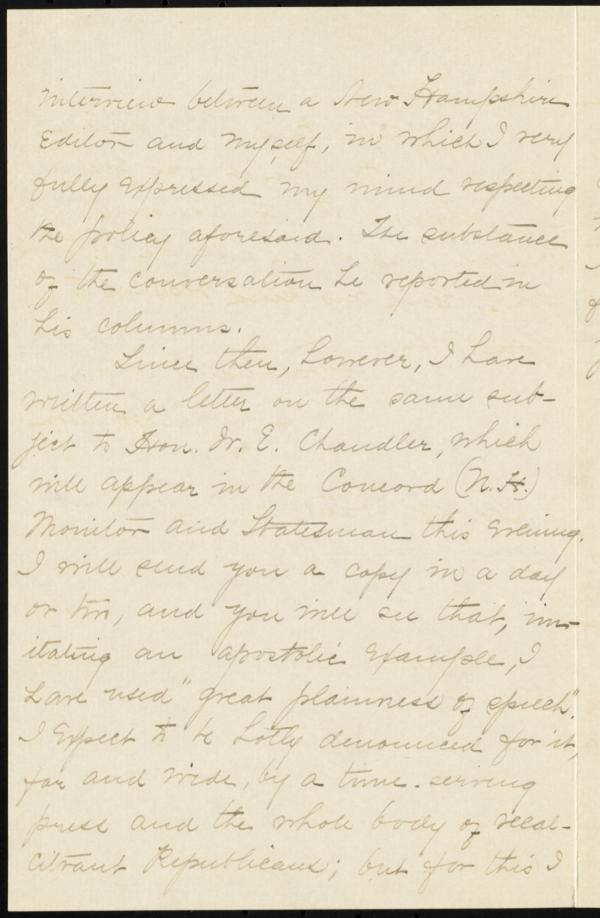 interview between a New Hampshire
Editor and myself, in which I very
fully expressed my mind respecting
the policy aforesaid. The substance
of the conversation he reported in
his columns.
Since then, however, I have
written a letter on the same sub-
ject to Hon. W. E. Chandler, which
will appear in the Concord (N.H.)
Monitor and Statesman this evening.
I will send you a copy in a day
or two, and you will see that, im-
itating an apostolic example, I
have used "great plainness of speech".
I expect to be hotly denounced for it,
far and wide, by a time-serving
press and the whole body of recal-
citrant Republicans; but for this I